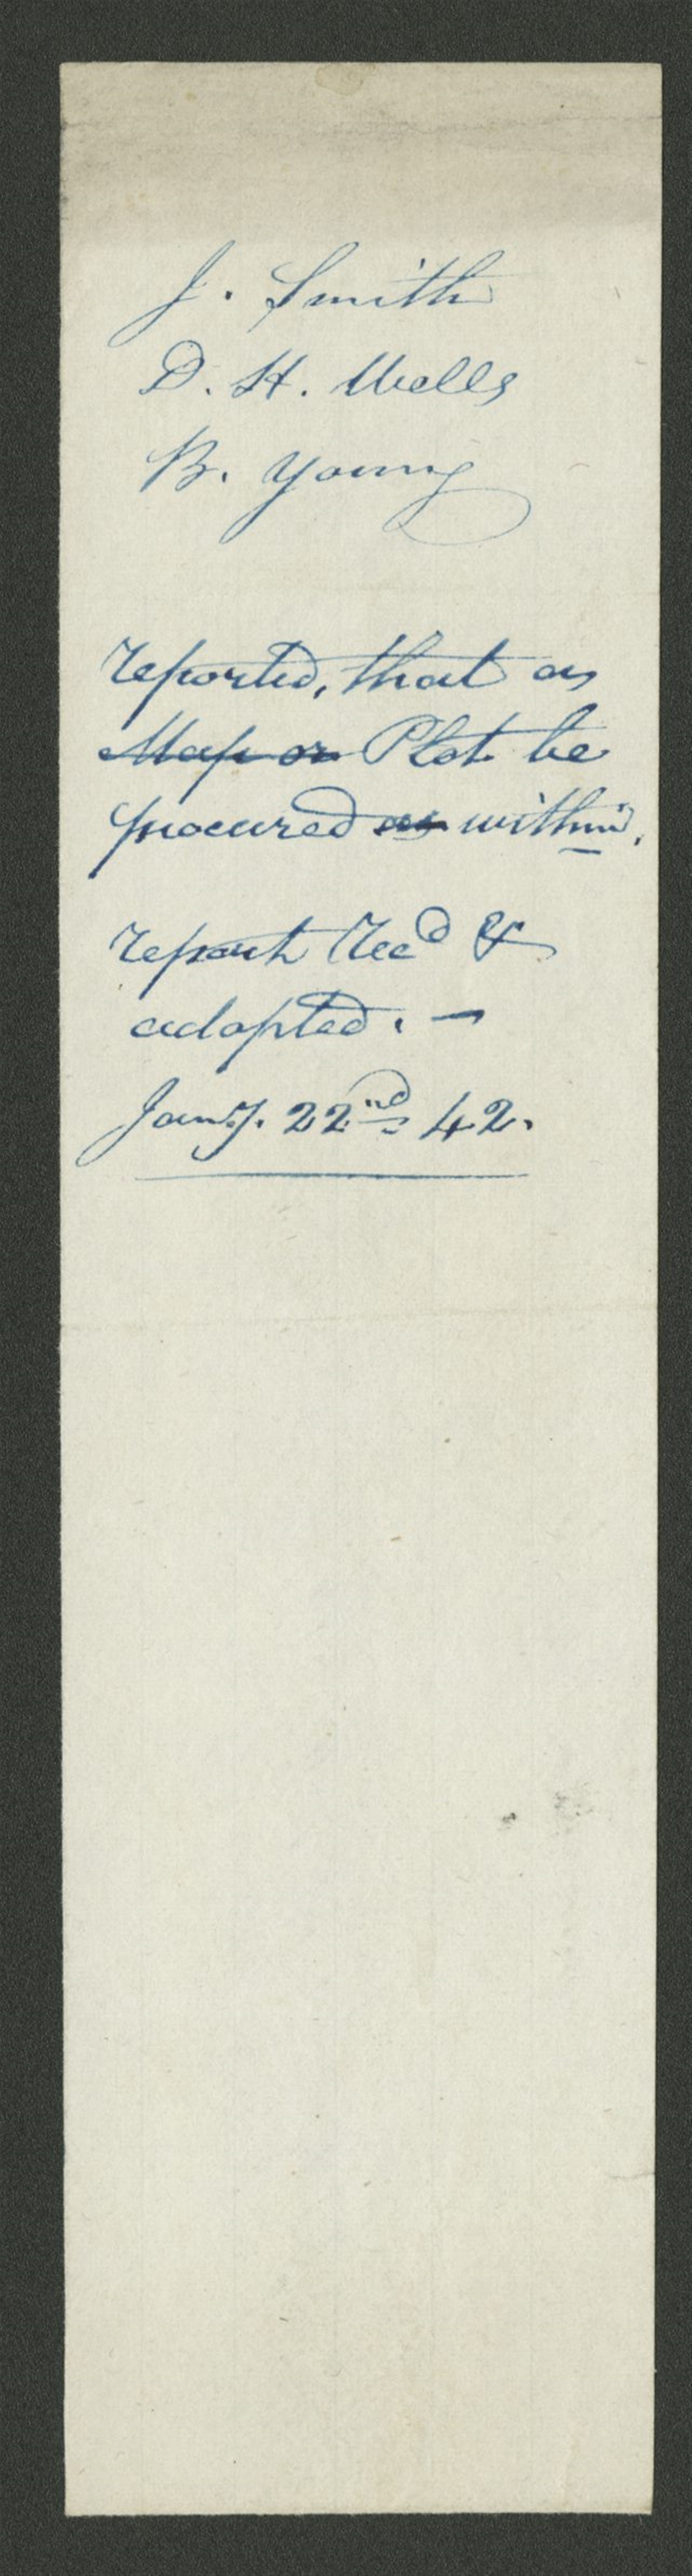 J. Smith
D. H. Wells
B. Young
reported, that as
~~Map or~~ Plot be
procured ~~as~~ within.
report Rec^d &
adopted. —
Jany. 22^nd 42.